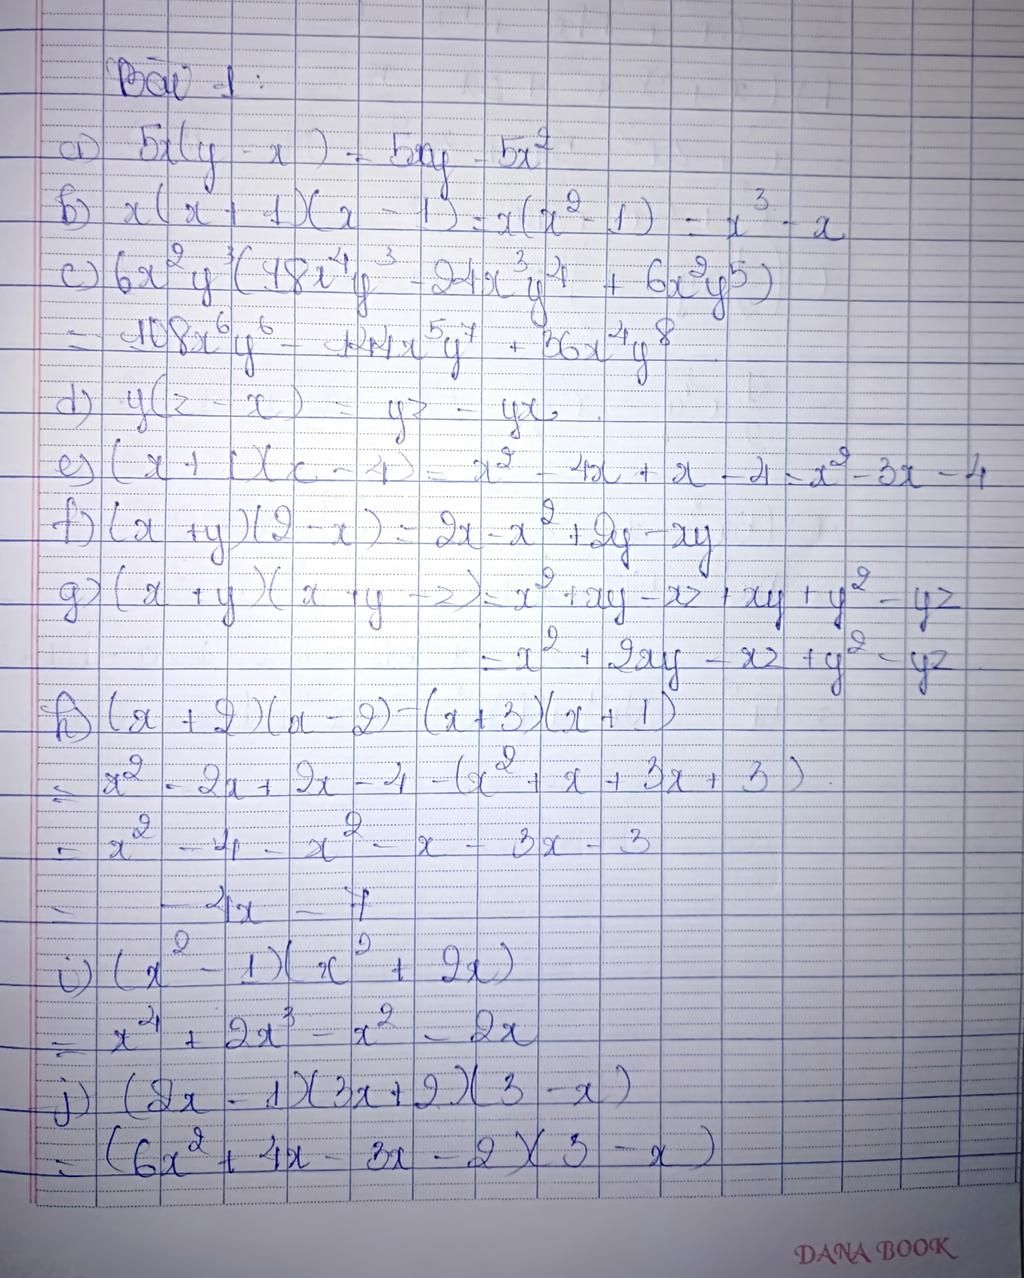 Bài 1:
a) 5x(y - x) = 5xy - 5x²
b) x(x + 1)(x - 1) = x(x² - 1) = x³ - x
c) 6x²y³(18x⁴y³ - 24x³y⁴ + 6x²y⁵)
= 108x⁶y⁶ - 144x⁵y⁷ + 36x⁴y⁸
d) y(z - x) = yz - yx.
e) (x + 1)(x - 4) = x² - 4x + x - 4 = x² - 3x - 4
f) (x + y)(2 - x) = 2x - x² + 2y - xy
g) (x + y)(x + y - z) = x² + xy - xz + xy + y² - yz
= x² + 2xy - xz + y² - yz
h) (x + 2)(x - 2) - (x + 3)(x + 1)
= x² - 2x + 2x - 4 - (x² + x + 3x + 3).
= x² - 4 - x² - x - 3x - 3
= - 4x - 7
i) (x² - 1)(x² + 2x)
= x⁴ + 2x³ - x² - 2x
j) (2x - 1)(3x + 2)(3 - x)
= (6x² + 4x - 3x - 2)(3 - x)
DANA BOOK